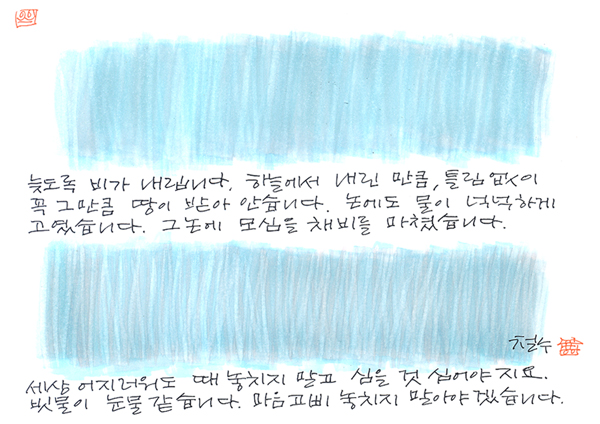 늦도록 비가 내립니다. 하늘에서 내린 만큼, 틀림없이
꼭 그만큼 땅이 받아 안습니다. 논에도 물이 넉넉하게
고였습니다. 그논에 모심을 채비를 마쳤습니다.
철수
세상 어지러워도 때 놓치지 말고 심을 것 심어야지요.
빗물이 눈물 같습니다. 마음고삐 놓치지 말아야겠습니다.